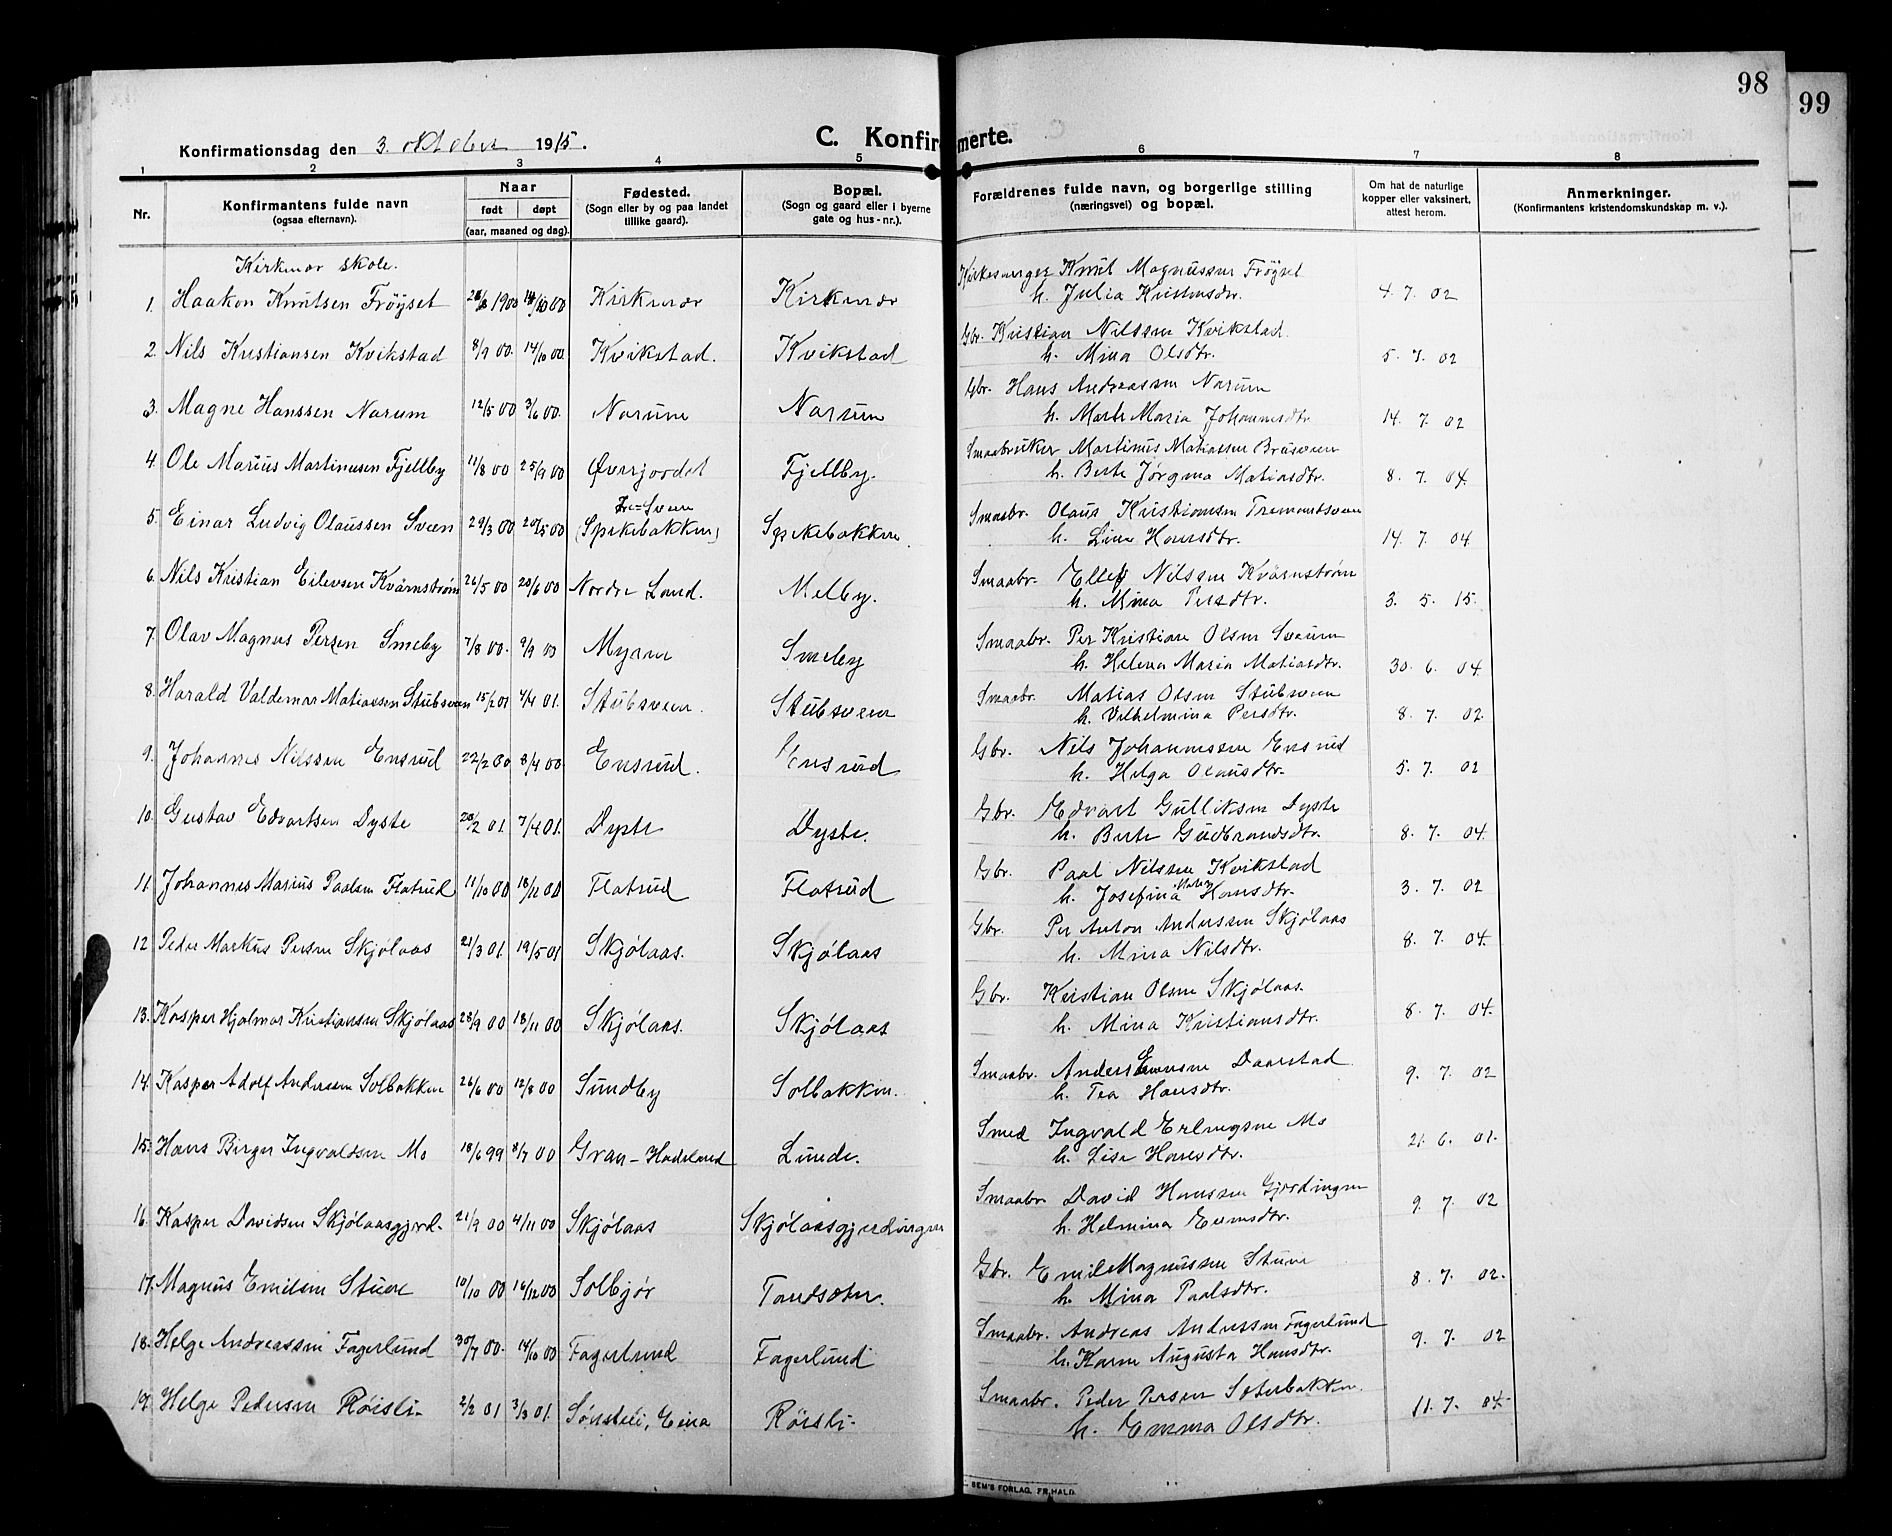 98
99
Konfirmationsdag den 3. oktober 1915.
C. Konfirmerte.
1 2 3 4 5 6 7 8
Nr.
Konfirmantens fulde navn
(ogsaa efternavn).
Naar
født døpt
(aar, maaned og dag).
Fødested.
(Sogn eller by og paa landet
tillike gaard).
Bopæl.
(Sogn og gaard eller i byerne
gate og hus-nr.).
Forældrenes fulde navn, og borgerlige stilling
(næringsvei) og bopæl.
Om hat de naturlige
kopper eller vaksinert,
attest herom.
Anmerkninger.
(Konfirmantens kristendomskundskap m. v.).
Kirkenær skole.
Kirkesanger Knut Magnussen Frøyset
1. Haakon Knutsen Frøyset 1900 14/10 00 Kirkenær Kirkenær h. Julia Kristensdtr. 4. 7. 02
Gbr. Kristian Nilssen Kvikstad
2. Nils Kristiansen Kvikstad 8/9 00. 14/10 00. Kvikstad. Kvikstad h. Mina Olsdtr. 5. 7. 02
Gbr. Hans Andreassen Narum
3. Magne Hanssen Narum 12/5 00 3/6 00. Narum Narum h. Marte Maria Johannesdtr 14. 7. 02
Smaabruker Martinus Matiassen Brusveen
4. Ole Marius Martinusen Fjellby 11/8 00 25/9 00 Øverjordet Fjellby. h. Berte Jørgina Matiasdtr. 8. 7. 04.
Sveen
Smaabr. Olaus Kristiansen Tremandsveen
5. Einar Ludvig Olaussen Sveen 29/3 00 20/5 00 (Spikebakken) Spikebakken. h. Lina Hansdtr. 14. 7. 04
Smaabr. Ellef Nilssen Kværnstrøm
6. Nils Kristian Eilevsen Kværnstrøm 26/5 00 20/6 00 Nordre Land. Melby. h. Mina Persdtr. 3. 5. 15.
Smaabr. Per Kristian Olsen Sveum
7. Olav Magnus Persen Smeby 7/8 00. 9/9 00 Myren Smeby h. Helena Maria Matiasdtr. 30. 6. 04
Smaabr. Matias Olsen Stubsveen
8. Harald Valdemar Matiassen Stubsveen 15/2 01 4/4 01. Stubsveen. Stubsveen h. Vilhelmina Persdtr. 8. 7. 02.
Gbr. Nils Johannessen Ensrud
9. Johannes Nilssen Ensrud 22/2 00 8/4 00 Ensrud. Ensrud h. Helga Olausdtr. 5. 7. 02
Gbr. Edvart Gulliksen Dyste
10. Gustav Edvartsen Dyste 20/2 01. 7/4 01. Dyste Dyste. h. Berte Gudbrandsdtr. 8. 7. 04.
Gbr. Paal Nilssen Kvikstad
11. Johannes Marius Paalsen Flatrud 11/10 00 18/11 00 Flatrud Flatrud h. Josefina Hansdtr. 3. 7. 02
Gbr. Per Anton Anderssen Skjølaas
12 Peder Markus Persen Skjølaas 21/3 01. 19/5 01 Skjølaas. Skjølaas h. Mina Nilsdtr. 8. 7. 04.
Gbr. Kristian Olsen Skjølaas.
13. Kasper Hjalmar Kristiansen Skjølaas 28/9 00 18/11 00 Skjølaas. Skjølaas h. Mina Kristiansdtr. 8. 7. 04.
Smaabr. Anders Evensen Daarstad
14. Kasper Adolf Anderssen Solbakken 26/6 00 12/8 00 Sundby Solbakken. h. Tea Hansdtr. 9. 7. 02
Smed Ingvald Erlingsen Mo
15. Hans Birger Ingvaldsen Mo 18/6 99 8/7 00 Gran - Hadeland Lunde. h. Lise Hansdtr. 21. 6. 01.
Smaabr. David Hanssen Gjerdingen
16. Kasper Davidsen Skjølaasgjerd- 21/9 00 4/11 00 Skjølaas Skjølaasgjerdingen h. Helmina Evensdtr. 9. 7. 02
Gbr. Emil Magnussen Stuve
17. Magnus Emilsen Stuve 10/10 00 16/12 00 Solbjør Tandsæter. h. Mina Paalsdtr. 8. 7. 02.
Smaabr. Andreas Anderssen Fagerlund
18. Helge Andreassen Fagerlund 30/7 00. 14/10 00 Fagerlund Fagerlund h. Karen Augusta Hansdtr. 9. 7. 02
Smaabr. Peder Persen Sæterbakken.
19. Helge Pedersen Røisli- 2/2 01 3/3 01. Sønsteli, Eina Røisli- h. Emma Olsdtr. 11. 7. 04-
SEM'S FORLAG, FR.HALD.